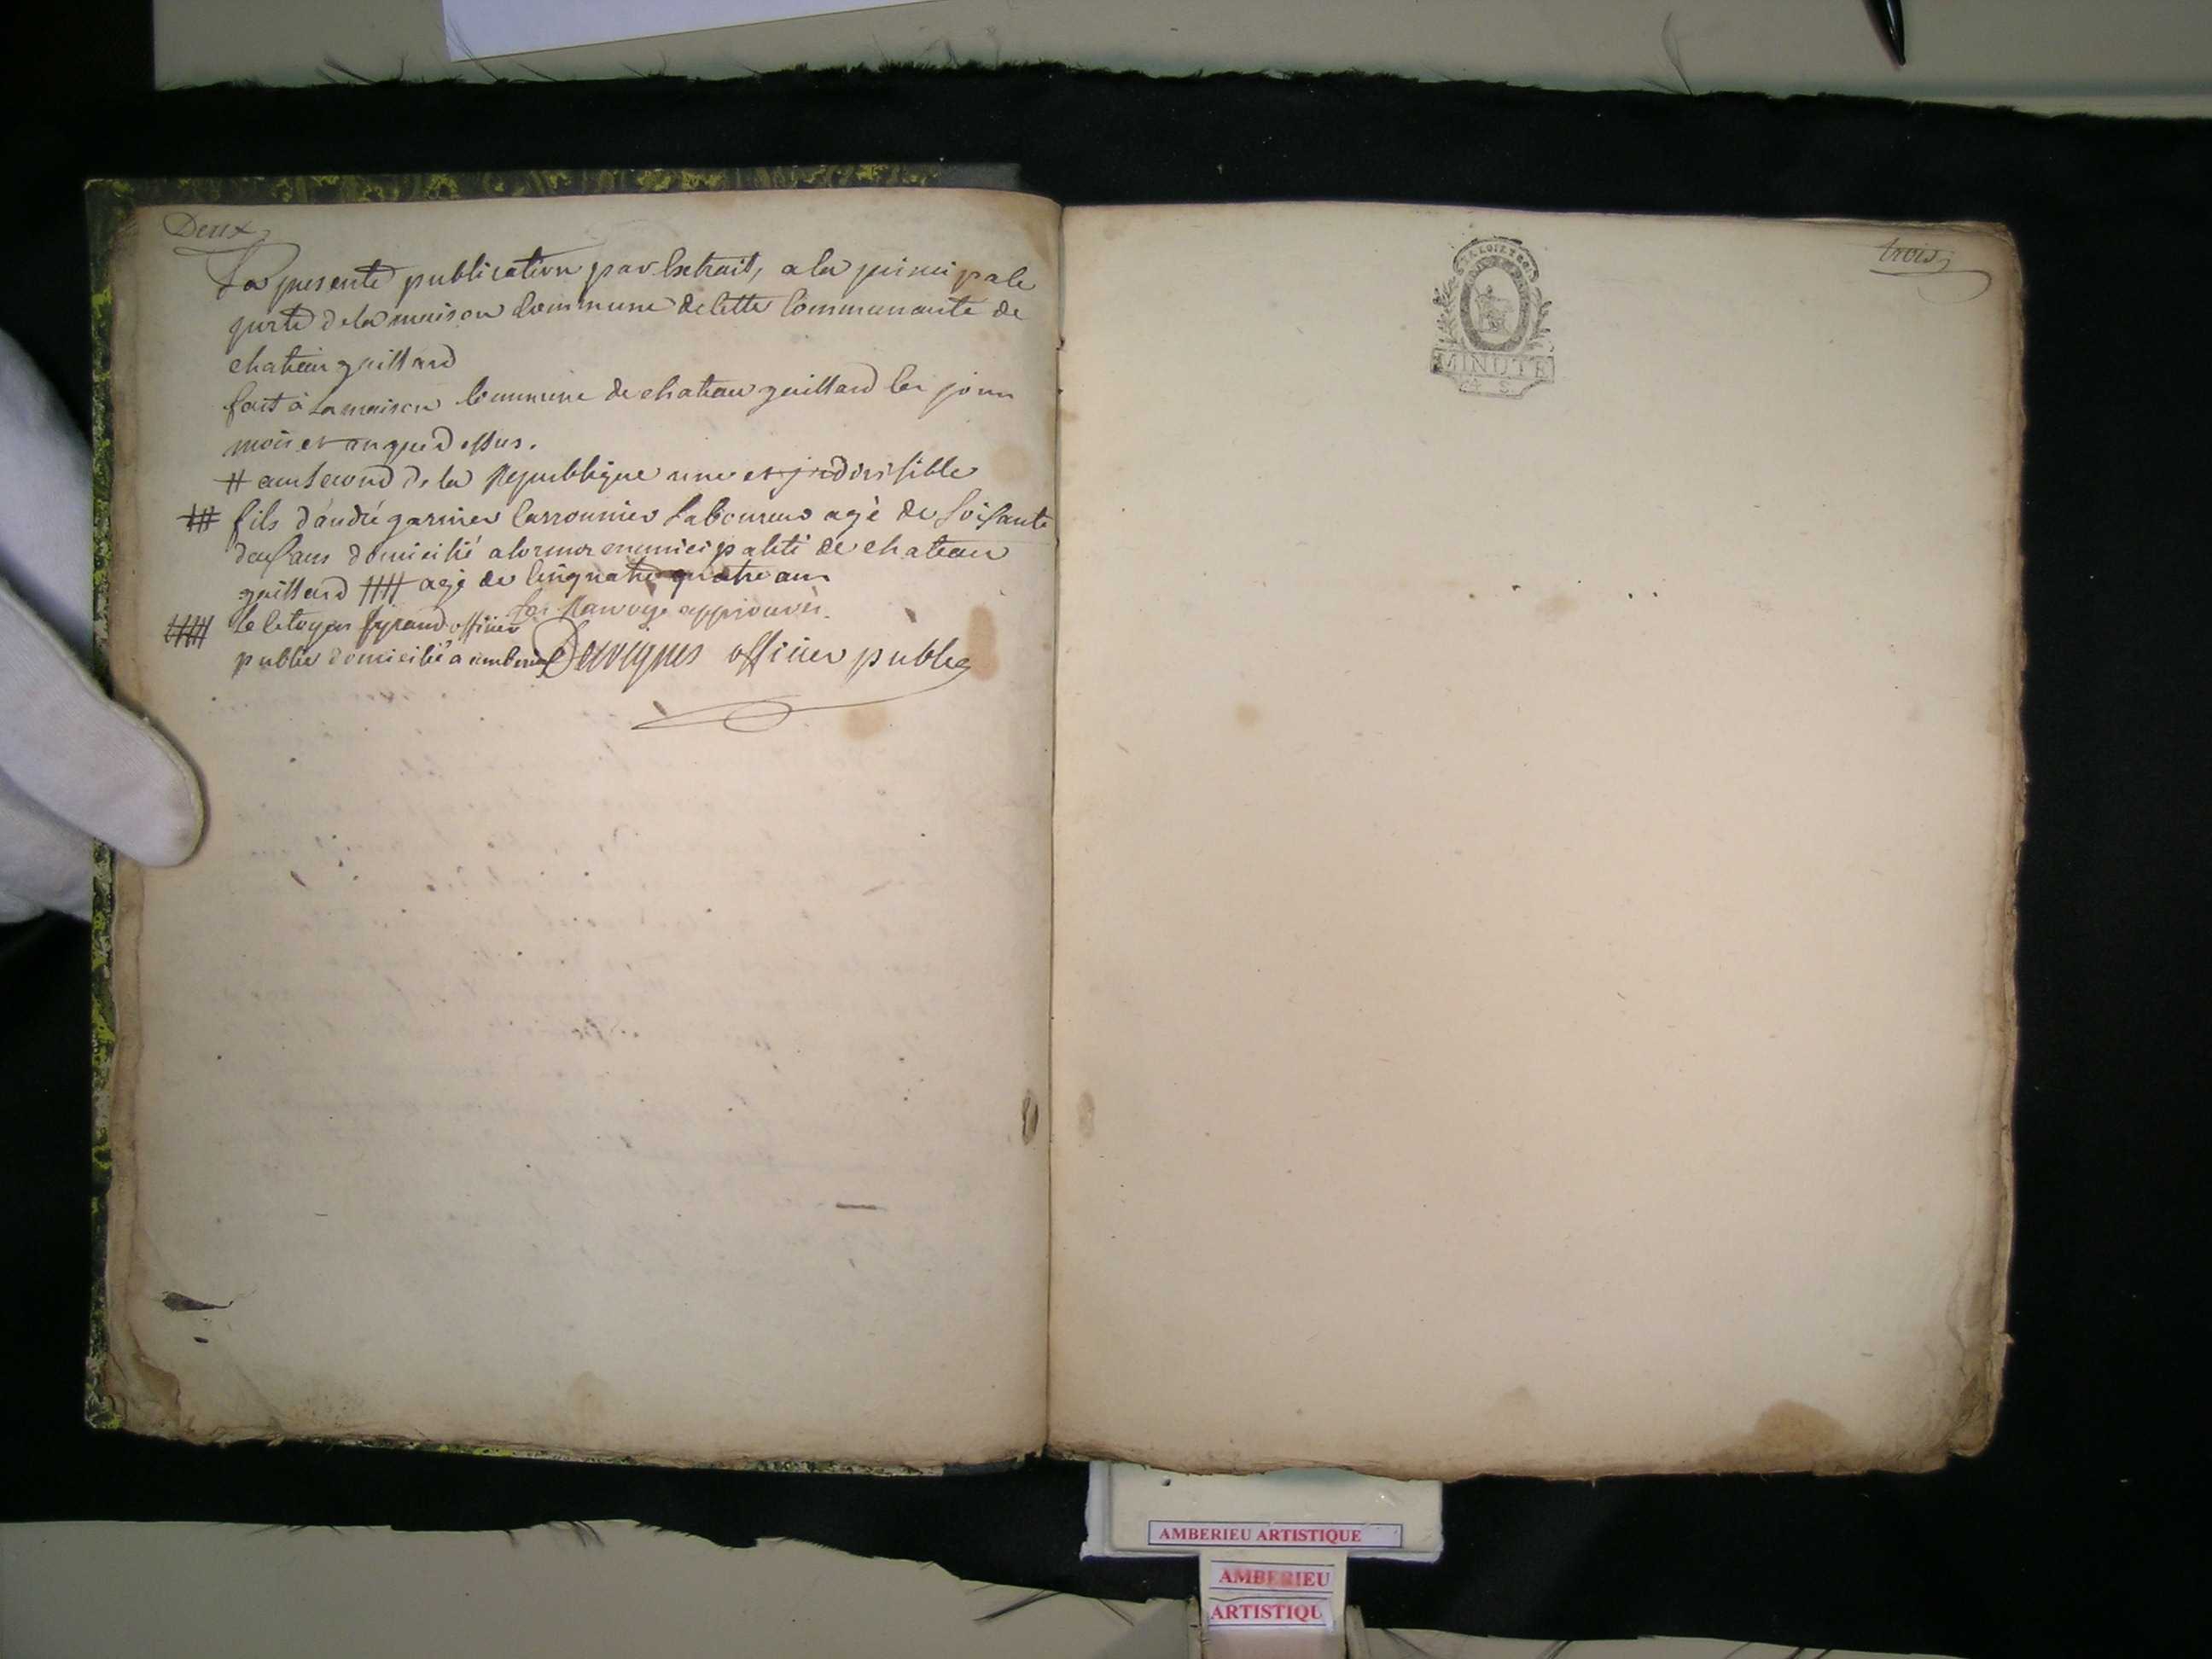 Deux
La presente publication par Extrait, a la principale
porte de la maison Commune de Cette Communauté de
chateau guillard
fait à la maison Commune de chateau gaillard les jour
mois et an que dessus.
# an second de la Republique une et indivisible
### fils d'andré garnier Laboureur agè de soisante
deux ans domicilié a municipalité de chateau
gaillard #### agé de Cinquante quatre ans
Les Renvoys approuvés.
##### Le Citoyen officier
public domicilié a amberieu Desvignes officier public
trois
LA LOI ET LE ROI
MINUTE
4 S.
AMBERIEU ARTISTIQUE
AMBERIEU
ARTISTIQU